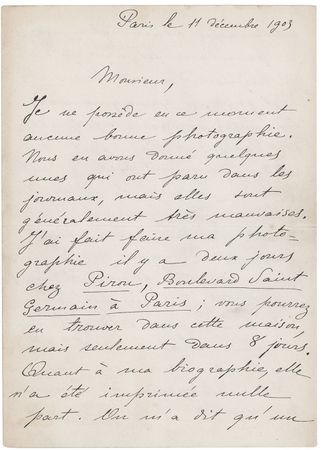 Paris le 11 décembre 1903
Monsieur,
Je ne possède en ce moment
aucune bonne photographie.
Nous en avons donné quelques
unes qui ont paru dans les
journaux, mais elles sont
généralement très mauvaises.
J'ai fait faire ma photo-
graphie il y a deux jours
chez Pirou, Boulevard Saint
Germain à Paris ; vous pourrez
en trouver dans cette maison,
mais seulement dans 8 jours.
Quant à ma biographie, elle
n'a été imprimée nulle
part. On m'a dit qu'un